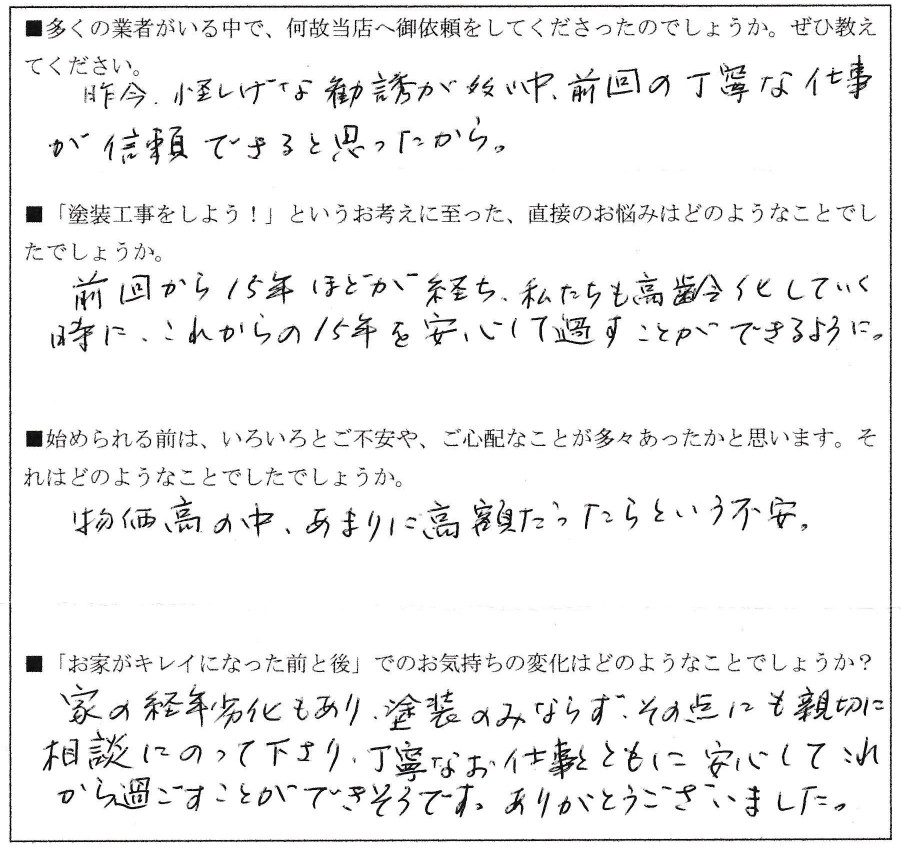 ■多くの業者がいる中で、何故当店へ御依頼をしてくださったのでしょうか。ぜひ教え
てください。
昨今、怪しげな勧誘が多い中、前回の丁寧な仕事
が信頼できると思ったから。
■「塗装工事をしよう！」というお考えに至った、直接のお悩みはどのようなことでし
たでしょうか。
前回から15年ほどが経ち、私たちも高齢化していく
時に、これからの15年を安心して過すことができるように。
■始められる前は、いろいろとご不安や、ご心配なことが多々あったかと思います。そ
れはどのようなことでしたでしょうか。
物価高の中、あまりに高額だったらという不安。
■「お家がキレイになった前と後」でのお気持ちの変化はどのようなことでしょうか？
家の経年劣化もあり、塗装のみならず、その点にも親切に
相談にのって下さり、丁寧なお仕事とともに安心してこれ
から過ごすことができそうです。ありがとうございました。